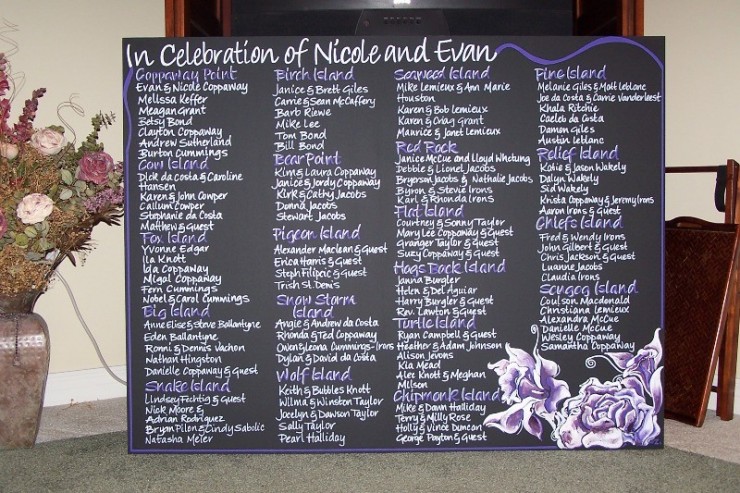 In Celebration of Nicole and Evan
Coppaway Point
Evan & Nicole Coppaway
Melissa Keffer
Meagan Grant
Betsy Bond
Clayton Coppaway
Andrew Sutherland
Burton Cummings
Cow Island
Dick da Costa & Caroline
Hansen
Karen & John Cowper
Callum Cowper
Stephanie da Costa
Matthew & Guest
Fox Island
Yvonne Edgar
Ila Knott
Ida Coppaway
Migal Coppaway
Fern Cummings
Nobel & Carol Cummings
Big Island
Anne Elise & Steve Ballantyne
Eden Ballantyne
Romi & Dennis Vachon
Nathan Hingston
Danielle Coppaway & Guest
Snake Island
Lindsey Fichtig & Guest
Nick Moore &
Adrian Rodriguez
Bryon Pilon & Cindy Sabolic
Natasha Meier
Birch Island
Janice & Brett Giles
Carrie & Sean McCaffery
Barb Riewe
Mike Lee
Tom Bond
Bill Bond
Bear Point
Kim & Laura Coppaway
Janice & Jordy Coppaway
Kirk & Cathy Jacobs
Donna Jacobs
Stewart Jacobs
Pigeon Island
Alexander Maclean & Guest
Erica Harris & Guest
Steph Filipcic & Guest
Trish St. Denis
Snow Storm
Island
Angie & Andrew da Costa
Rhonda & Ted Coppaway
Owen & Leona Cummings-Irons
Dylan & David da Costa
Wolf Island
Keith & Bubbles Knott
Wilma & Winston Taylor
Jocelyn & Dawson Taylor
Sally Taylor
Pearl Halliday
Seaweed Island
Mike Lemieux & Ann Marie
Houston
Karen & Bob Lemieux
Karen & Craig Grant
Maurice & Janet Lemieux
Red Rock
Janice McCue and Lloyd Whetung
Debbie & Lionel Jacobs
Bryerson Jacobs & Nathalie Jacobs
Byron & Stevie Irons
Karl & Rhonda Irons
Flat Island
Courtney & Sonny Taylor
Mary Lee Coppaway & Guest
Granger Taylor & Guest
Suzy Coppaway & Guest
Hogs Back Island
Janna Burgler
Helen & Del Aguiar
Harry Burgler & Guest
Rev. Lawton & Guest
Turtle Island
Ryan Campbell & Guest
Heather & Adam Johnson
Alison Jevons
Kia Mead
Alec Knott & Meghan
Milson
Chipmonk Island
Mike & Dawn Halliday
Terry & Milly Rose
Holly & Vince Duncan
George Payton & Guest
Pine Island
Melanie Giles & Matt Leblanc
Joe da Costa & Carrie Vanderleest
Khala Ritchie
Caeleb da Costa
Damon Giles
Austin Leblanc
Relief Island
Katie & Jason Wakely
Dalyn Wakely
Sid Wakely
Krista Coppaway & Jeremy Irons
Aaron Irons & Guest
Chiefs Island
Fred & Wendy Irons
John Gilbert & Guest
Chris Jackson & Guest
Luanne Jacobs
Claudia Irons
Scugog Island
Coulson Macdonald
Christiana Lemieux
Alexandra McCue
Danielle McCue
Wesley Coppaway
Samantha Coppaway